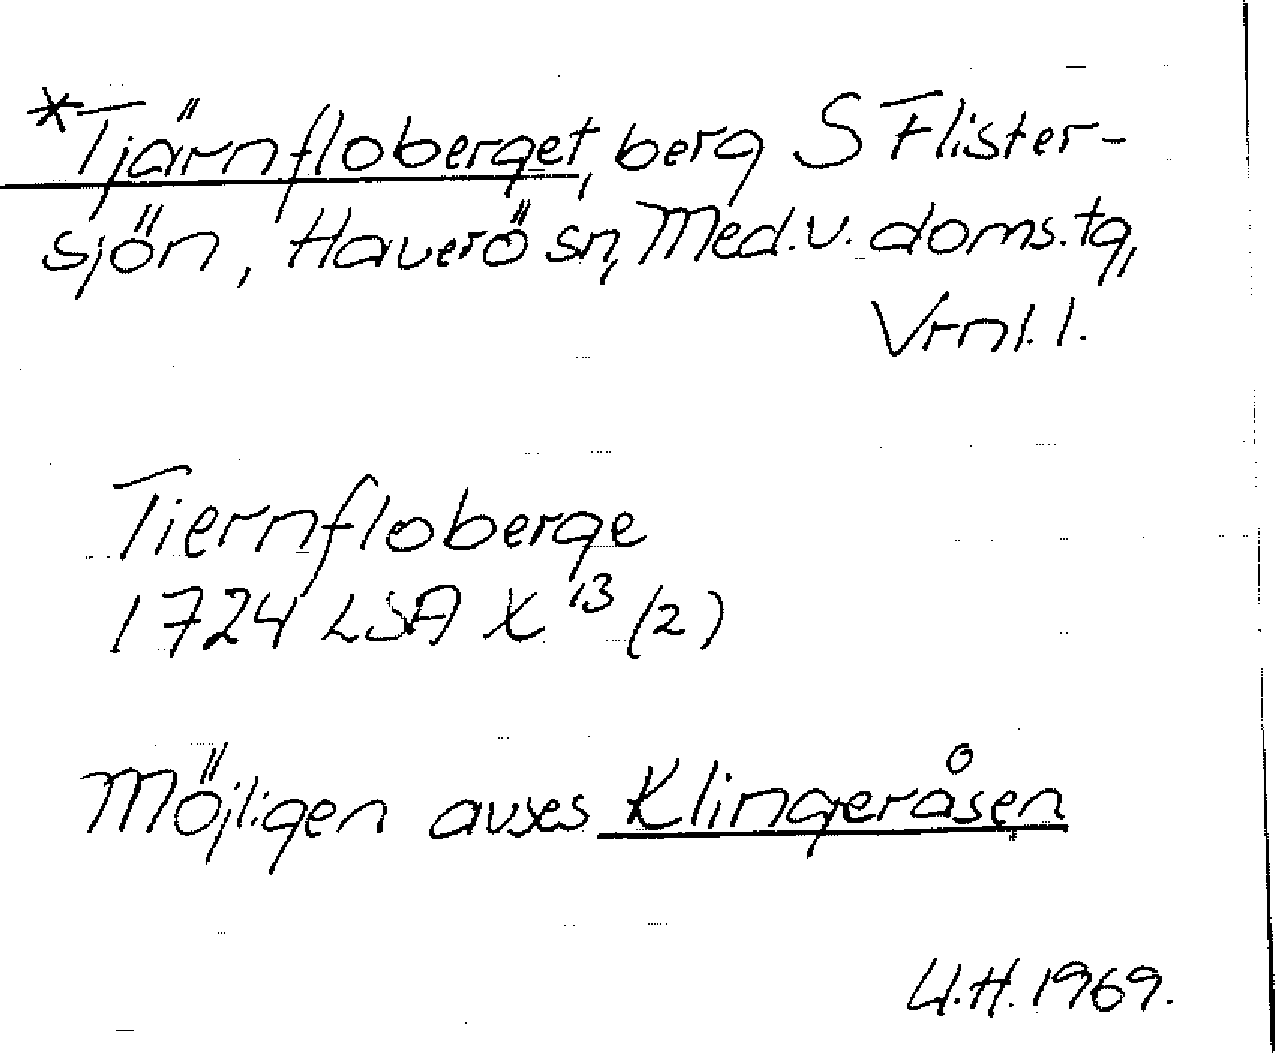 *Tjärnfloberget, berg S Flister-
sjön, Haverö sn, Med.v. doms.tg,
Vrnl. l.
Tiernfloberge
1724 LSA X 13 (2)
Möjligen avses Klingeråsen
U.H. 1969.